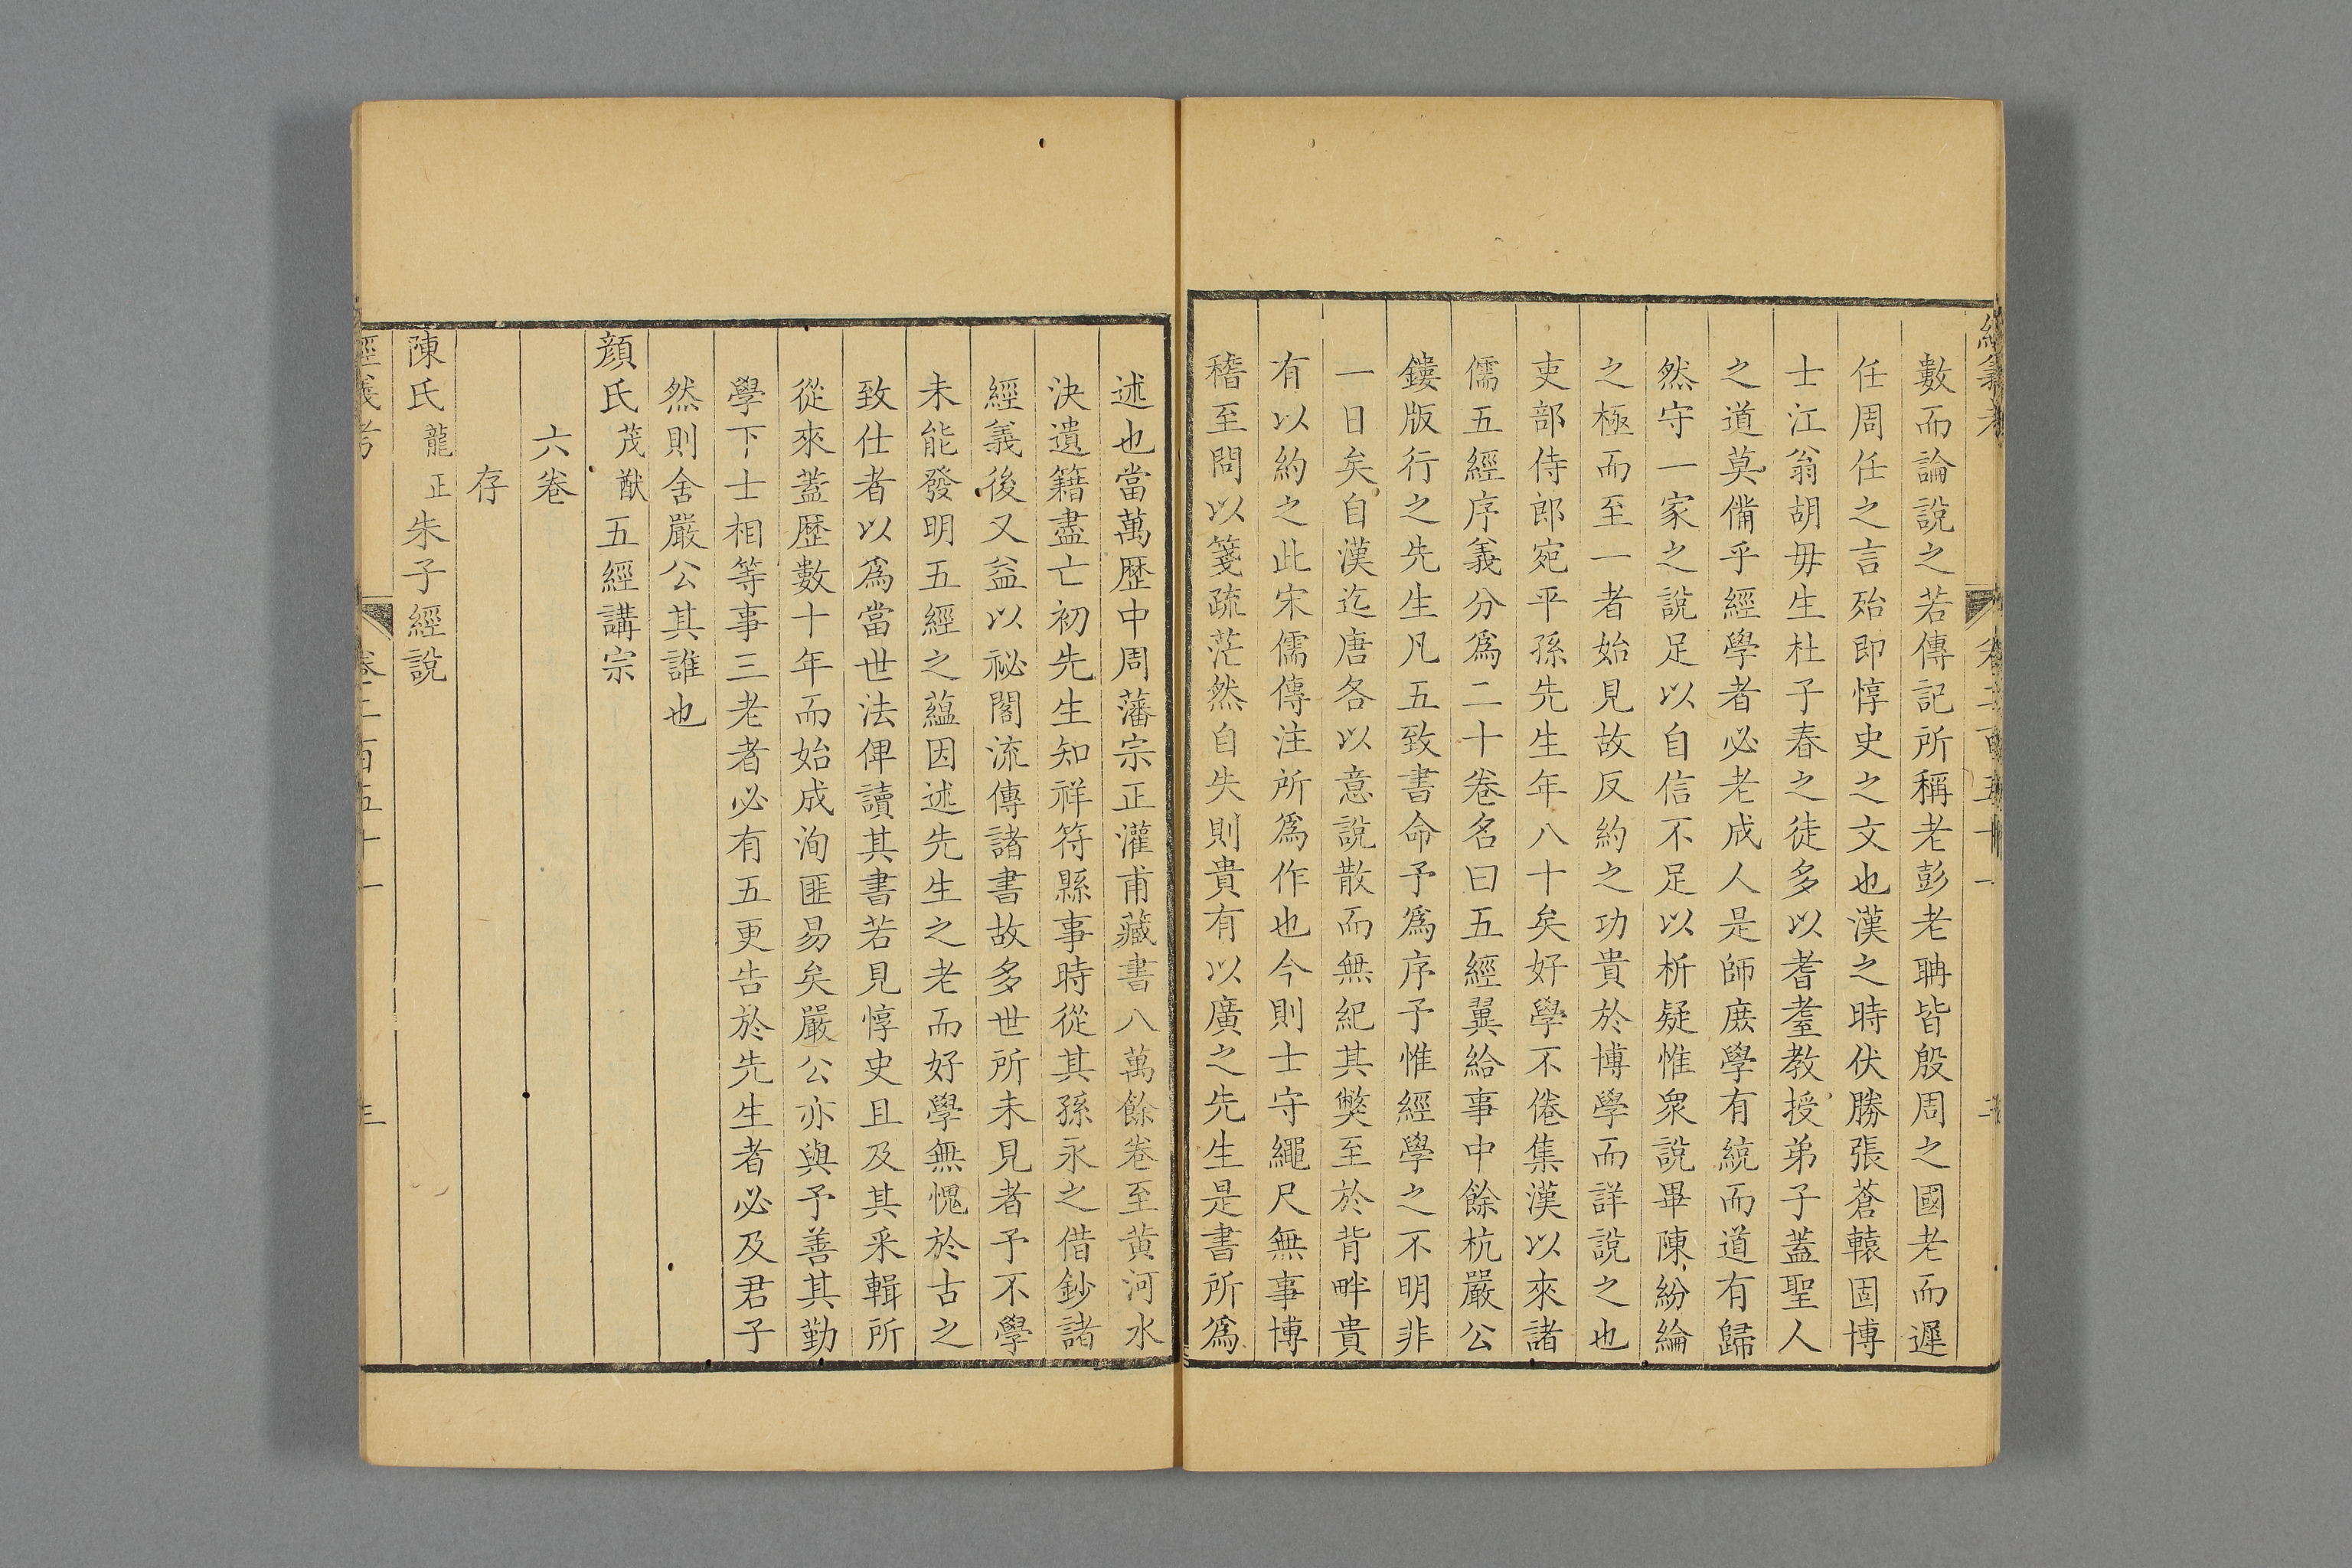 經義考 卷二百五十一 二
數而論說之若傳記所稱老彭老聃皆殷周之國老而遲
任周任之言殆即惇史之文也漢之時伏勝張蒼轅固博
士江翁胡毋生杜子春之徒多以耆耋教授弟子蓋聖人
之道莫備乎經學者必老成人是師庶學有統而道有歸
然守一家之說足以自信不足以析疑惟衆說畢陳紛綸
之極而至一者始見故反約之功貴於博學而詳說之也
吏部侍郎宛平孫先生年八十矣好學不倦集漢以來諸
儒五經序義分爲二十卷名曰五經翼給事中餘杭嚴公
鏤版行之先生凡五致書命予爲序予惟經學之不明非
一日矣自漢迄唐各以意說散而無紀其獘至於背畔貴
有以約之此宋儒傳注所爲作也今則士守繩尺無事博
稽至問以箋疏茫然自失則貴有以廣之先生是書所爲
述也當萬歴中周藩宗正灌甫藏書八萬餘卷至黄河水
決遺籍盡亡初先生知祥符縣事時從其孫永之借鈔諸
經義後又益以祕閣流傳諸書故多世所未見者予不學
未能發明五經之藴因述先生之老而好學無愧於古之
致仕者以爲當世法俾讀其書若見惇史且及其采輯所
從來蓋歷數十年而始成洵匪易矣嚴公亦與予善其勤
學下士相等事三老者必有五更告於先生者必及君子
然則舍嚴公其誰也
顔氏茂猷五經講宗
六卷
存
陳氏龍正朱子經說
經義考 卷二百五十一 三